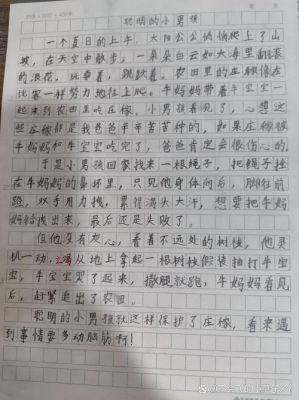 聪明的小男孩
一个夏日的上午，太阳公公悄悄爬上了山
坡，在天空中散步，一朵朵白云如大海里翻滚
的浪花，玩耍着，跳跃着。农田里的庄稼像在
比赛一样努力地往上爬。牛妈妈带着牛宝宝一
起来到农田里吃庄稼。小男孩看见了，心想这
些庄稼都是我爸爸辛辛苦苦种的，如果庄稼被
牛妈妈和牛宝宝吃完了，爸爸肯定会很伤心的。
于是小男孩回家找来一根绳子，把绳子拴
在牛妈妈的鼻环里，只见他身体向后，脚往前
蹬，双手用力拽，累得满头大汗，想要把牛妈
妈给拽出来，最后还是失败了。
但他没有灰心，看着不远处的树枝，他灵
机一动，从地上拿起一根树枝假装抽打牛宝
宝，牛宝宝哭了起来，撒腿就跑，牛妈妈看见
后，赶紧追出了农田。
聪明的小男孩就这样保护了庄稼，看来遇
到事情要多动脑筋啊！